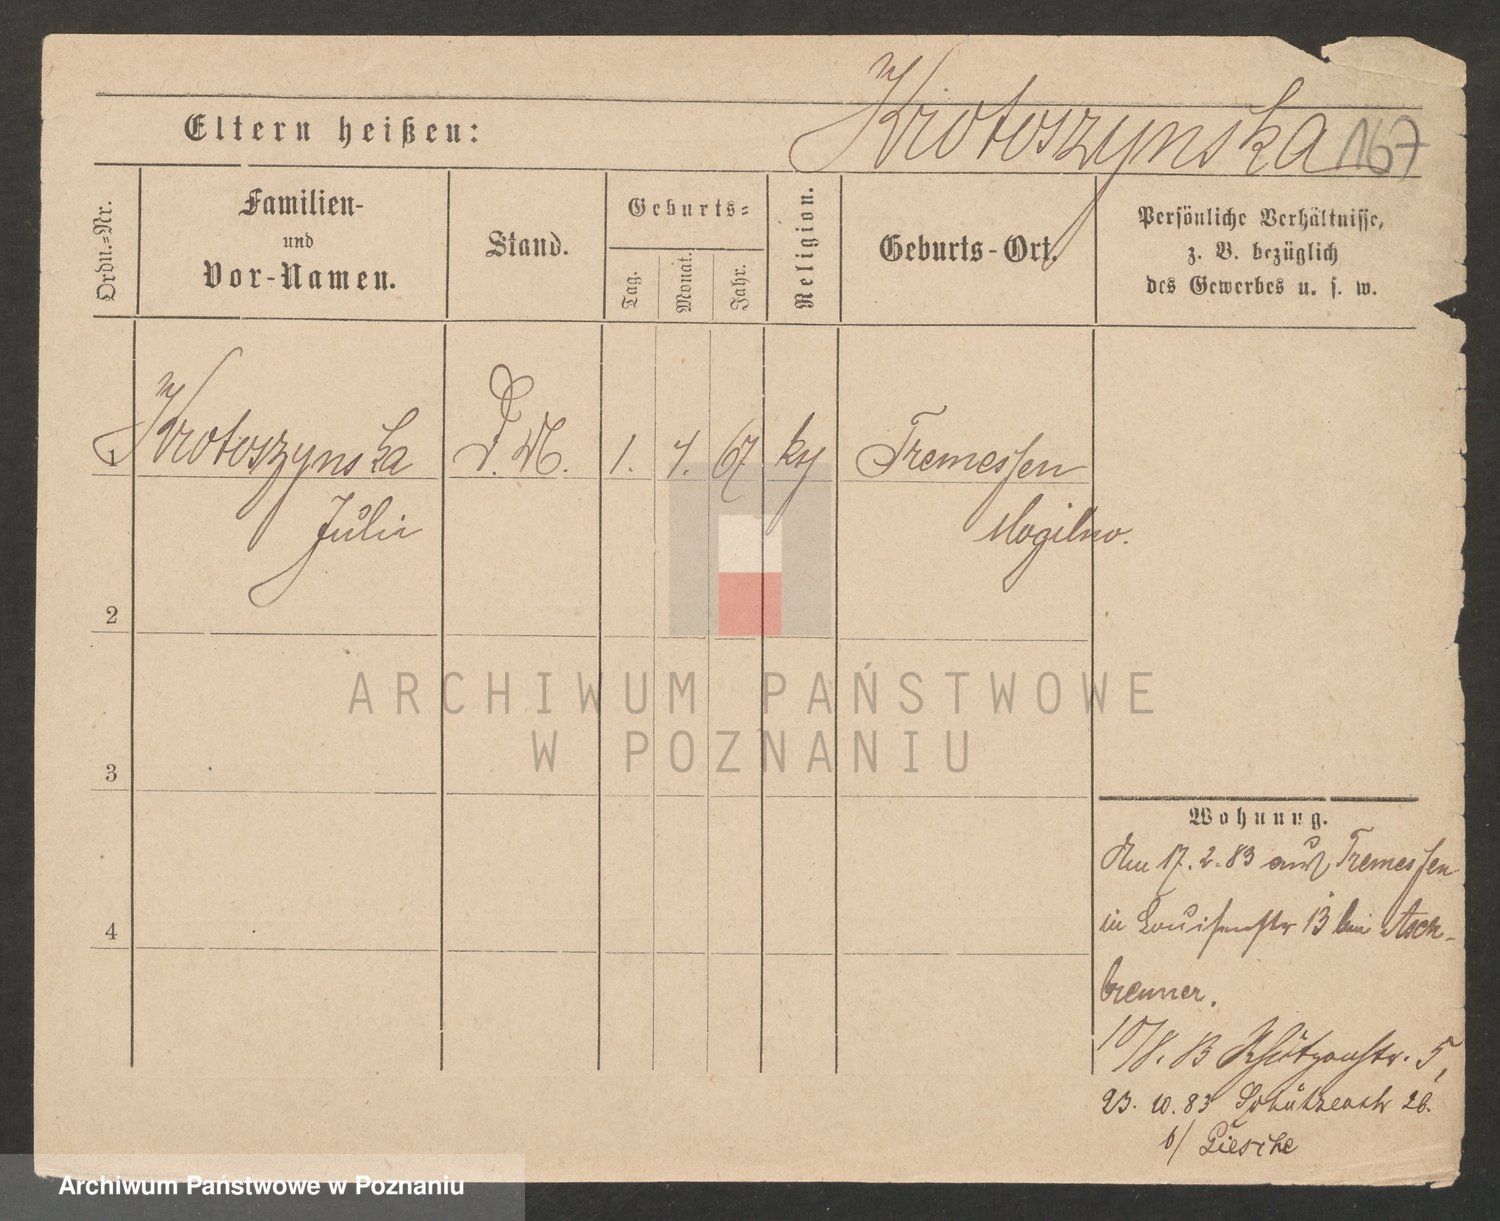 Krotoszynska 167
Eltern heißen:
Ordn.=Nr.
Familien-
und
Vor-Namen.
Stand.
Geburts=
Tag.
Monat.
Jahr.
Religion.
Geburts-Ort.
Persönliche Verhältnisse,
z. B. bezüglich
des Gewerbes u. s. w.
1 Krotoszynska D. M. 1. 4. 67 ky Tremessen
Julie Mogilno.
2
3
4
ARCHIWUM PAŃSTWOWE
W POZNANIU
Wohnung.
Am 17. 2. 83 aus Tremessen
in Louisenstr 13 bei Asch-
brenner.
10/8. 83 Schützenstr. 5,
23. 10. 83 Schützenstr 26.
b/ Giesche
Archiwum Państwowe w Poznaniu